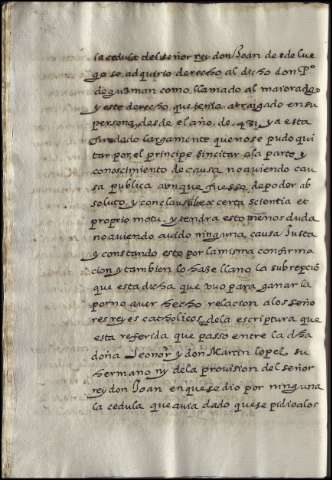 la cedula del señor rey don Joan desde lue
go se adquirio derecho al dicho don P.º
de guzman como llamado al maioradgo
y este derecho que tenia atraigado en su
persona desde el año de 431 y a esta
fundado largamente que no se pudo qui
tar por el principe sin citar a la parte y
conoscimiento de causa no aviendo cau
sa publica aunque fuesse de poder ab
soluto y con clausula ex certa scientia et
proprio motu y tendra esto menos duda
no aviendo avido ninguna causa Justa
y constando esto por la misma confirma
cion y tambien lo haze llano la subrepçio
que esta dicha que uvo para ganar la
por no aver hecho relacion a los seño
res reyes catholicos de la escriptura que
esta referida que passo entre la dha
doña Leonor y don Martin Lopez su
hermano ny de la provision del señor
rey don Joan en que se dio por ninguna
la cedula que avia dado que se pidio a los